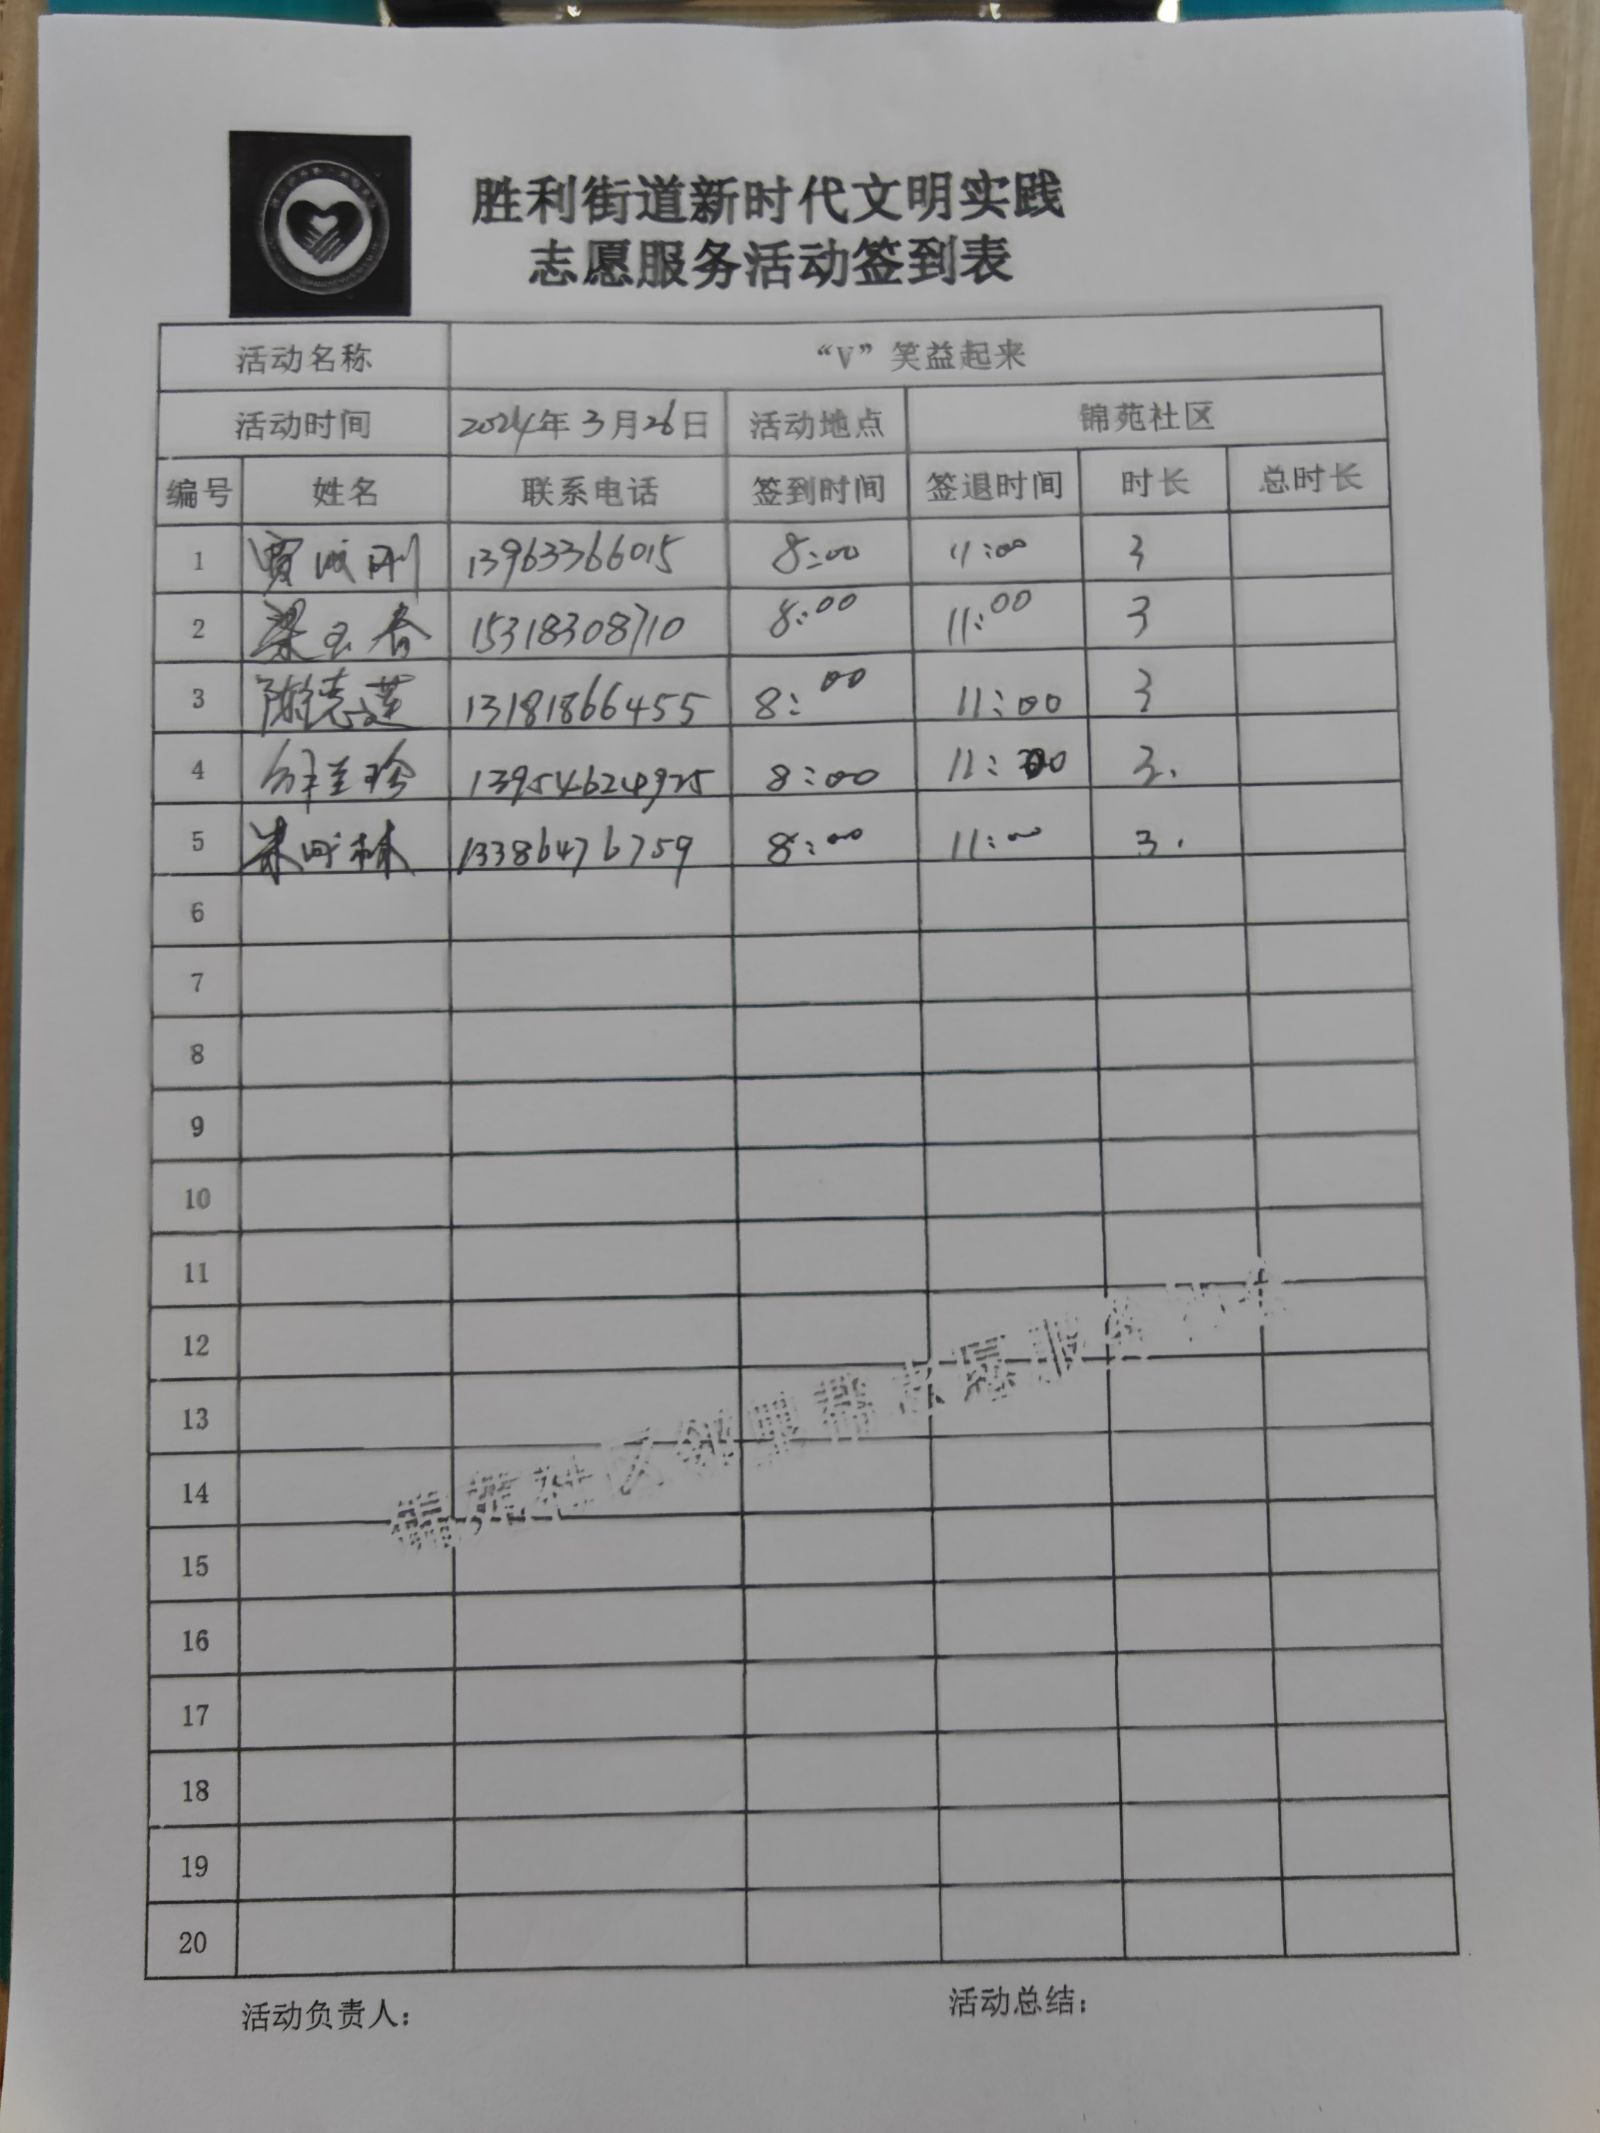 胜利街道新时代文明实践
志愿服务活动签到表
活动名称 “V”笑益起来
活动时间 2024年3月26日 活动地点 锦苑社区
编号 姓名 联系电话 签到时间 签退时间 时长 总时长
1 13963366015 8:00 11:00 3
2 梁玉春 15318308710 8:00 11:00 3
3 陈德莲 13181866455 8:00 11:00 3
4 13954624925 8:00 11:00 3.
5 13386476759 8:00 11:00 3.
6
7
8
9
10
11
12
13
14
15
16
17
18
19
20
锦苑社区邻里帮志愿服务
活动负责人： 活动总结：